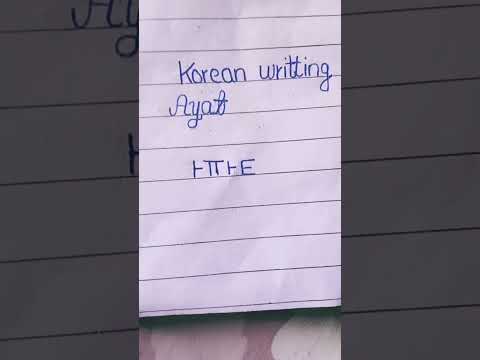 Korean writting
Ayat
ㅏㅠㅏㅌ